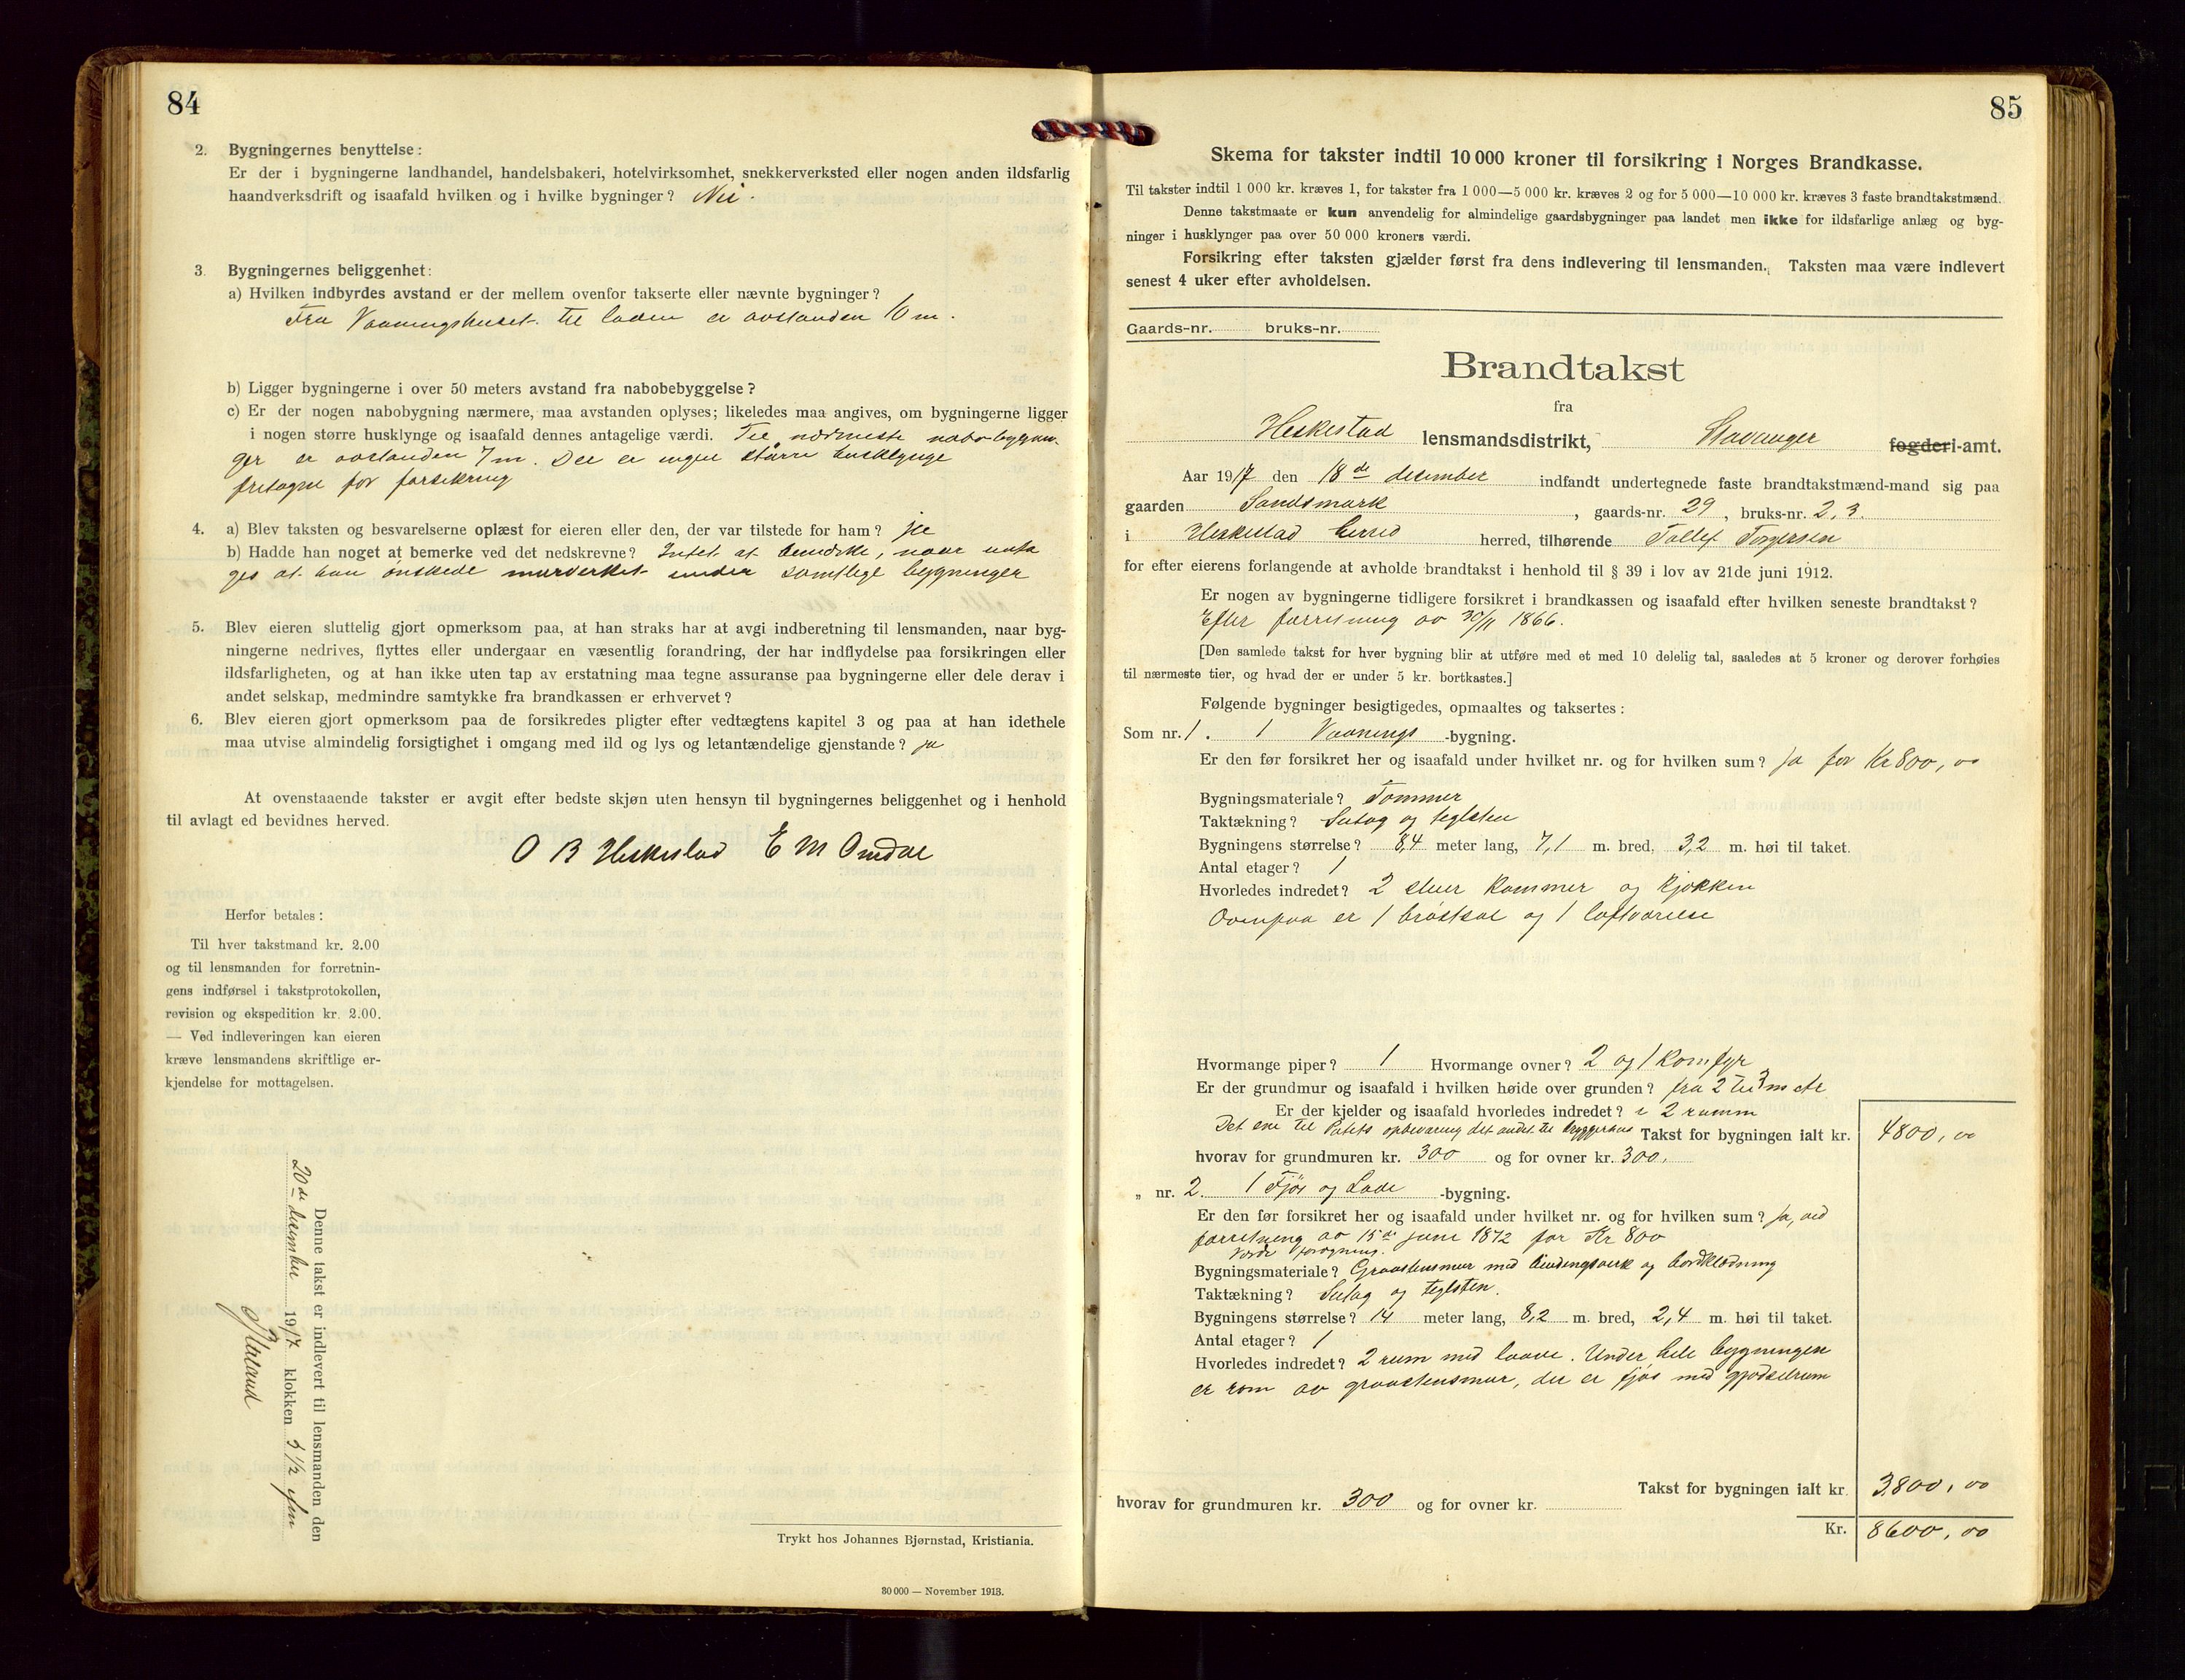 84
2. Bygningernes benyttelse:
Er der i bygningerne landhandel, handelsbakeri, hotelvirksomhet, snekkerverksted eller nogen anden ildsfarlig
haandverksdrift og isaafald hvilken og i hvilke bygninger? Nei.
3. Bygningernes beliggenhet:
a) Hvilken indbyrdes avstand er der mellem ovenfor takserte eller nævnte bygninger?
Fra Vaaningshuset til laden er avstanden 10 m.
b) Ligger bygningerne i over 50 meters avstand fra nabobebyggelse?
c) Er der nogen nabobygning nærmere, maa avstanden oplyses; likeledes maa angives, om bygningerne ligger
i nogen større husklynge og isaafald dennes antagelige værdi. Til nærmeste nabobygnin-
ger er avstanden 7 m. Der er ingen større husklynge
fritagne for forsikring
4. a) Blev taksten og besvarelserne oplæst for eieren eller den, der var tilstede for ham? ja
b) Hadde han noget at bemerke ved det nedskrevne? Intet at bemerke, naar unta
ges at han ønskede murverket under samtlige bygninger
5. Blev eieren sluttelig gjort opmerksom paa, at han straks har at avgi indberetning til lensmanden, naar byg-
ningerne nedrives, flyttes eller undergaar en væsentlig forandring, der har indflydelse paa forsikringen eller
ildsfarligheten, og at han ikke uten tap av erstatning maa tegne assuranse paa bygningerne eller dele derav i
andet selskap, medmindre samtykke fra brandkassen er erhvervet?
6. Blev eieren gjort opmerksom paa de forsikredes pligter efter vedtægtens kapitel 3 og paa at han idethele
maa utvise almindelig forsigtighet i omgang med ild og lys og letantændelige gjenstande? ja
At ovenstaaende takster er avgit efter bedste skjøn uten hensyn til bygningernes beliggenhet og i henhold
til avlagt ed bevidnes herved.
O B Heskestad E M Omdal
Herfor betales:
Til hver takstmand kr. 2.00
og til lensmanden for forretnin-
gens indførsel i takstprotokollen,
revision og ekspedition kr. 2.00.
— Ved indleveringen kan eieren
kræve lensmandens skriftlige er-
kjendelse for mottagelsen.
Denne takst er indlevert til lensmanden den
20de december 1917 klokken 3 1/2 fm
Trykt hos Johannes Bjørnstad, Kristiania.
30 000 — November 1913.
85
Skema for takster indtil 10 000 kroner til forsikring i Norges Brandkasse.
Til takster indtil 1 000 kr. kræves 1, for takster fra 1 000—5 000 kr. kræves 2 og for 5 000—10 000 kr. kræves 3 faste brandtakstmænd.
Denne takstmaate er kun anvendelig for almindelige gaardsbygninger paa landet men ikke for ildsfarlige anlæg og byg-
ninger i husklynger paa over 50 000 kroners værdi.
Forsikring efter taksten gjælder først fra dens indlevering til lensmanden. Taksten maa være indlevert
senest 4 uker efter avholdelsen.
Gaards-nr. bruks-nr.
Brandtakst
fra
Heskestad lensmandsdistrikt, Stavanger fogderi-amt.
Aar 1917 den 18de december indfandt undertegnede faste brandtakstmænd-mand sig paa
gaarden Sandsmark, gaards-nr. 29, bruks-nr. 2, 3.
i Heskestad herred herred, tilhørende Tollef Torgersen
for efter eierens forlangende at avholde brandtakst i henhold til § 39 i lov av 21de juni 1912.
Er nogen av bygningerne tidligere forsikret i brandkassen og isaafald efter hvilken seneste brandtakst?
Efter forretning av 30/11 1866.
[Den samlede takst for hver bygning blir at utføre med et med 10 delelig tal, saaledes at 5 kroner og derover forhøies
til nærmeste tier, og hvad der er under 5 kr. bortkastes.]
Følgende bygninger besigtigedes, opmaaltes og taksertes:
Som nr. 1. 1 Vaanings -bygning.
Er den før forsikret her og isaafald under hvilket nr. og for hvilken sum? ja for Kr 800,00
Bygningsmateriale? Tømmer
Taktækning? Sutag og teglsten
Bygningens størrelse? 8,4 meter lang, 7,1 m. bred, 3,2 m. høi til taket.
Antal etager? 1
Hvorledes indredet? 2 stuer kammer og kjøkken
Ovenpaa er 1 brøstsal og 1 loftværelse
Hvormange piper? 1 Hvormange ovner? 2 og 1 Komfyr
Er der grundmur og isaafald i hvilken høide over grunden? fra 2 til 3 mete
Er der kjelder og isaafald hvorledes indredet? i 2 rumm
Det ene til Potets opbevaring det andet til bryggerhus Takst for bygningen ialt kr. 4800,00
hvorav for grundmuren kr. 300 og for ovner kr. 300,
„ nr. 2. 1 Fjøs og Lade -bygning.
Er den før forsikret her og isaafald under hvilket nr. og for hvilken sum? Ja, ved
forretning av 15de juni 1872 for Kr 800
Bygningsmateriale? Graastensmur med bindingsverk og bordklædning
Taktækning? Sutag og teglsten.
Bygningens størrelse? 14 meter lang, 8,2 m. bred, 2,4 m. høi til taket.
Antal etager? 1
Hvorledes indredet? 2 rum med laave. Under hele bygningen
er rom av graastensmur, der er fjøs med gjødselrum
Takst for bygningen ialt kr. 3800,00
hvorav for grundmuren kr. 300 og for ovner kr.
Kr. 8600,00